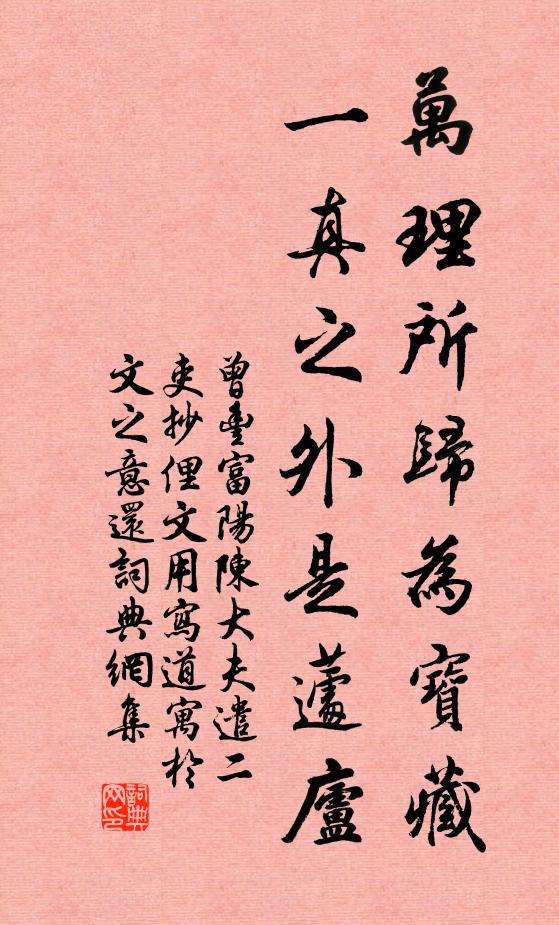 萬理所歸為寶藏
一真之外是蘧廬
曾豐富陽陳大夫遣二
吏抄俚文用寫道寓於
文之意還詞典網集
詞典网印